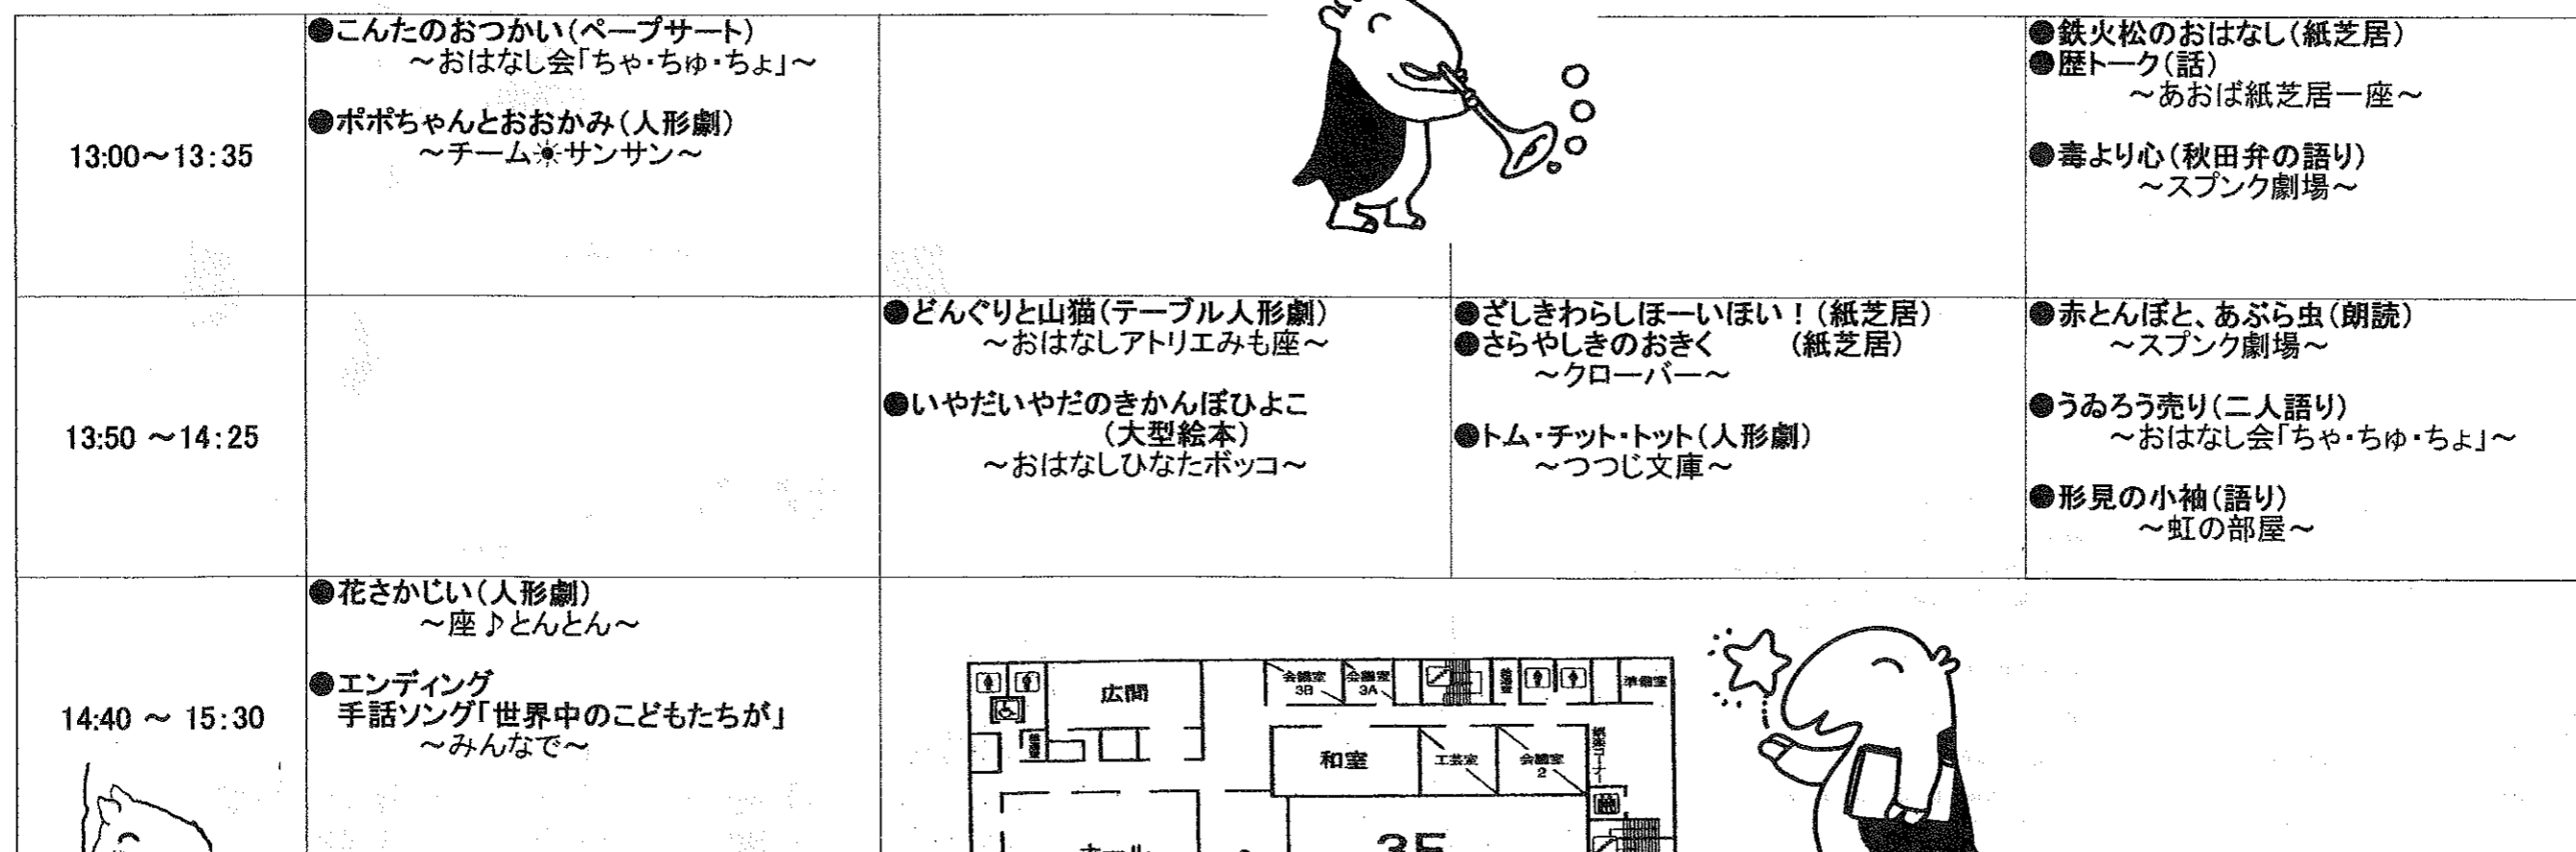 13:00～13:35
●こんたのおつかい(ペープサート)
～おはなし会「ちゃ・ちゅ・ちょ」～
●ポポちゃんとおおかみ(人形劇)
～チーム☀サンサン～
●鉄火松のおはなし(紙芝居)
●歴トーク(話)
～あおば紙芝居一座～
●毒より心(秋田弁の語り)
～スプンク劇場～
13:50 ～14:25
●どんぐりと山猫(テーブル人形劇)
～おはなしアトリエみも座～
●いやだいやだのきかんぼひよこ
(大型絵本)
～おはなしひなたボッコ～
●ざしきわらしほーいほい！(紙芝居)
●さらやしきのおきく (紙芝居)
～クローバー～
●トム・チット・トット(人形劇)
～つつじ文庫～
●赤とんぼと、あぶら虫(朗読)
～スプンク劇場～
●うゐろう売り(二人語り)
～おはなし会「ちゃ・ちゅ・ちょ」～
●形見の小袖(語り)
～虹の部屋～
14:40 ～ 15:30
●花さかじい(人形劇)
～座♪とんとん～
●エンディング
手話ソング「世界中のこどもたちが」
～みんなで～
広間
会議室
3B
会議室
3A
準備室
和室
工芸室
会議室
2
ホール
3F